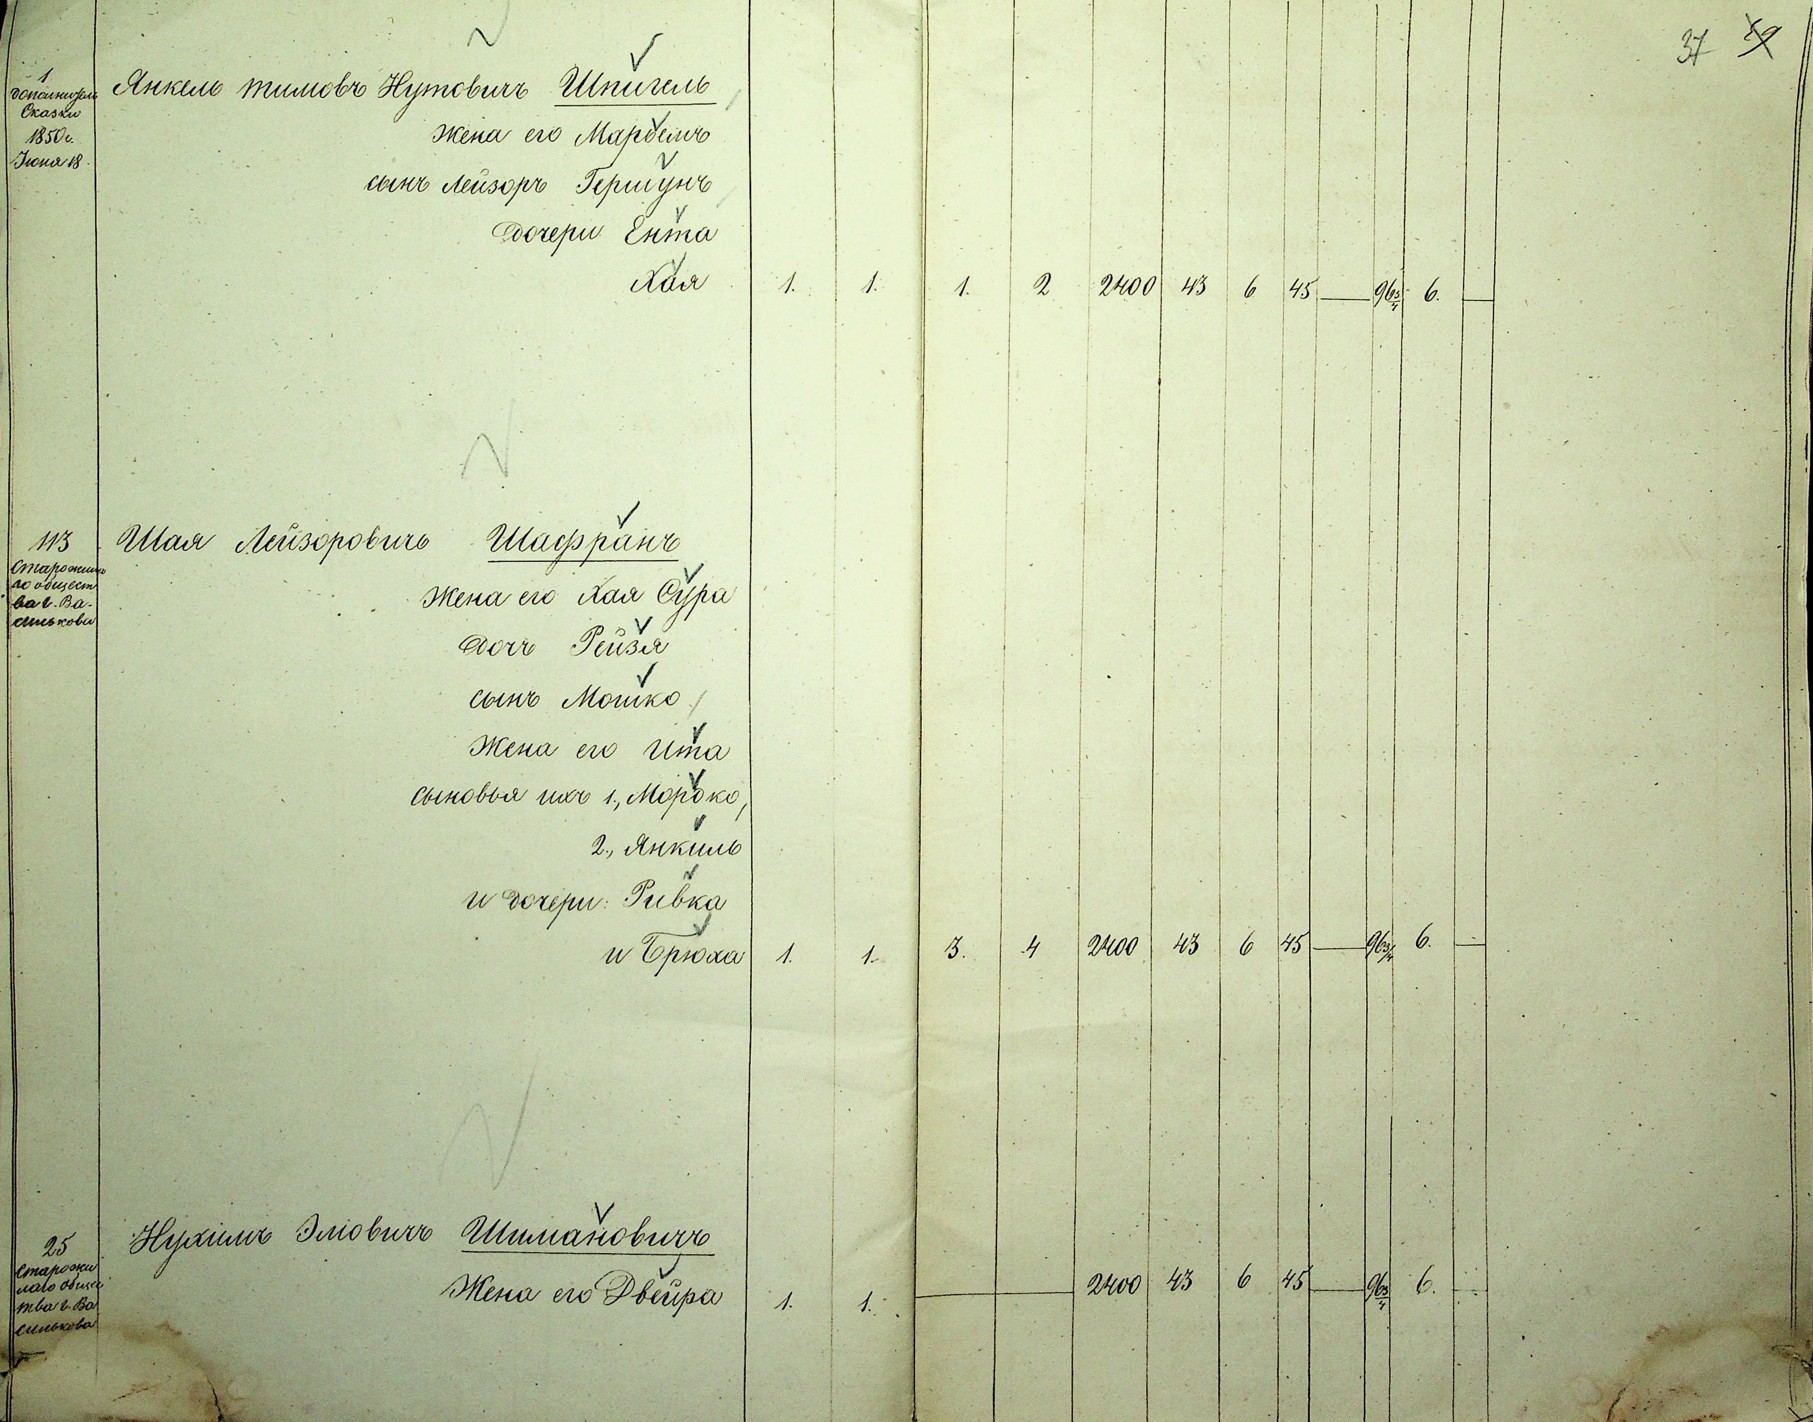 37 59
1
дополнител
Сказки
1850 г.
Іюня 18.
Янкель Тимовъ Нутовичъ Шпигель
Жена его Марьемъ
сынъ Лейзоръ Гершунъ
дочери Ента
Хая 1. 1. 1. 2 2400 43 6 45 — 96 3/4 6. —
113
Старожил
го общест
ва г. Ва-
силькова
Шая Лейзоровичъ Шафранъ
Жена его Хая Сура
дочь Рейзя
сынъ Мошко
Жена его Ита
сыновья ихъ 1., Мордко,
2., Янкиль
и дочери: Ривка
и Брюха 1. 1. 3. 4 2400 43 6 45 — 96 3/4 6. —
25
Старожи
лаго общес
тва г. Ва
силькова
Нухимъ Элiовичъ Шимановичъ
Жена его Двейра 1. 1. — — 2400 43 6 45 — 96 3/4 6. —